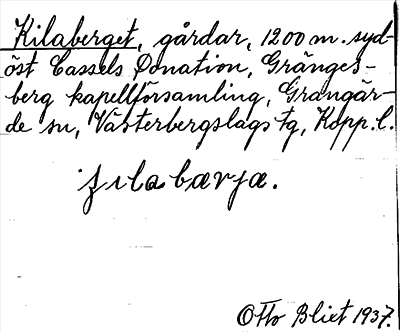 Kilaberget, gårdar, 1200 m. syd-
öst Cassels Donation, Gränges-
berg kapellförsamling, Grangär-
de sn, Västerbergslags tg, Kopp. l.
ʒılabærja.
Otto Blixt 1937.